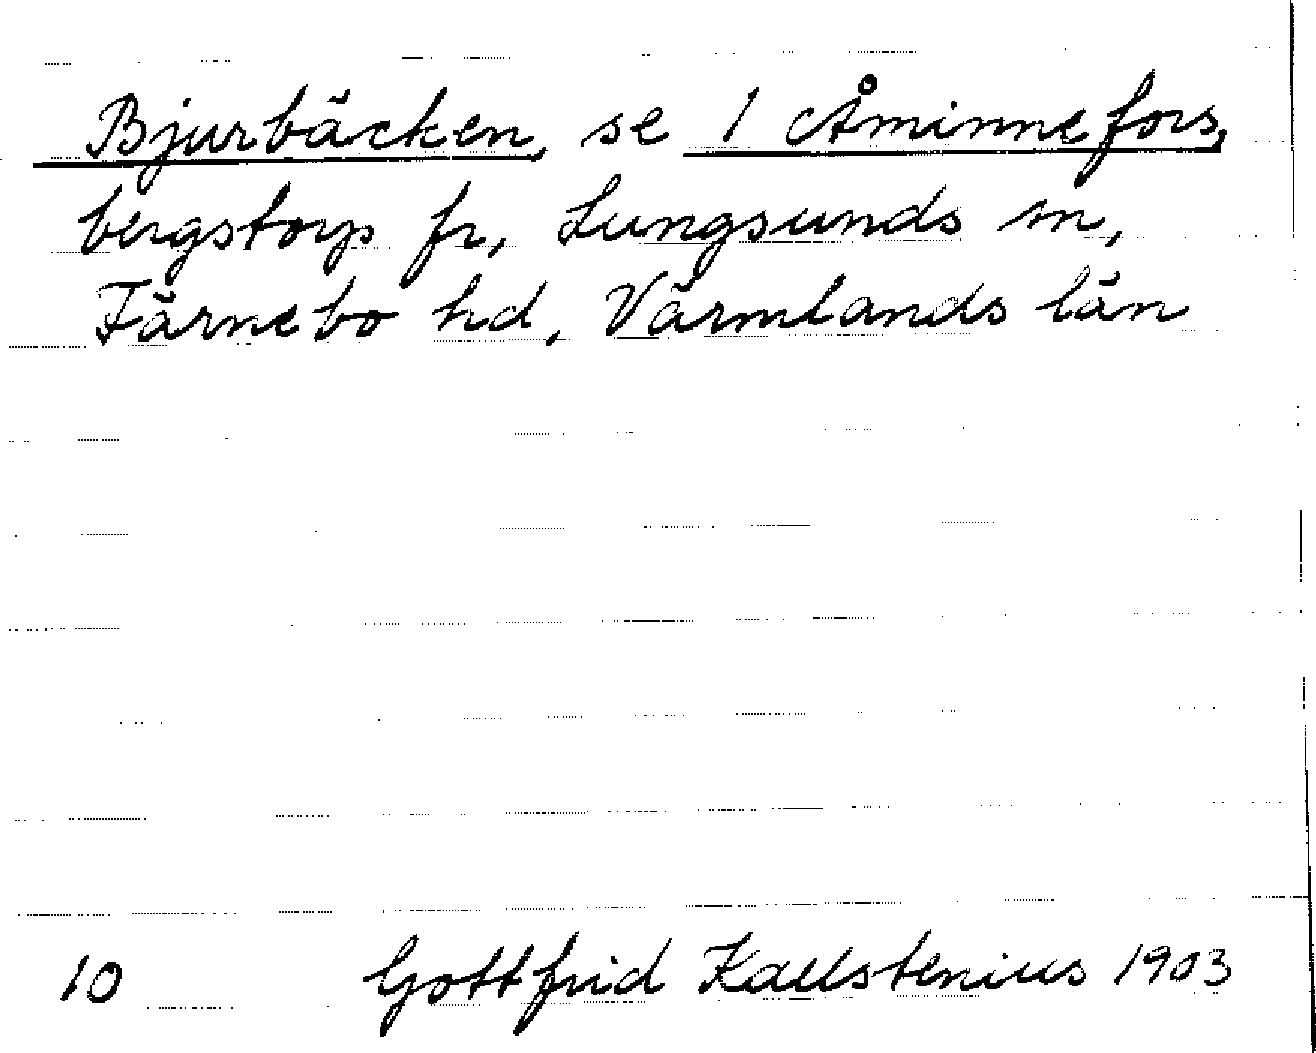 Bjurbäcken, se 1 Åminnefors,
bergstorp fr, Lungsunds sn,
Färnebo hd, Värmlands län
10 Gottfrid Kallstenius 1903